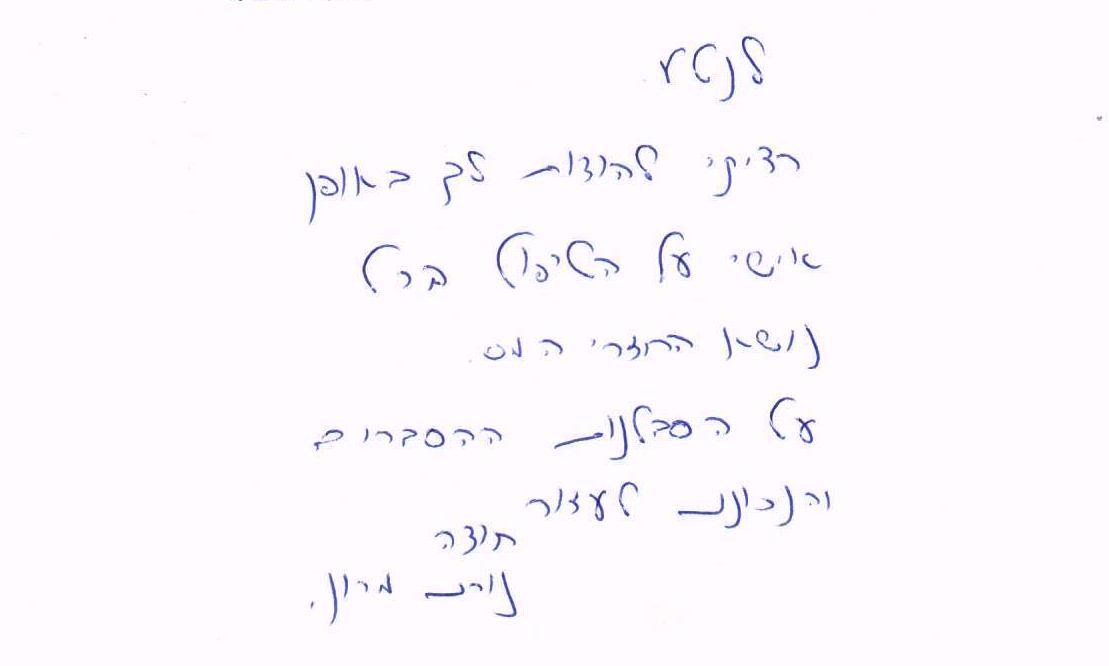 לנטע
רציתי להודות לך באופן
אישי על הטיפול בכל
נושא החזרי המס.
על הסבלנות ההסברים
והנכונות לעזור
תודה
נורית מרון.